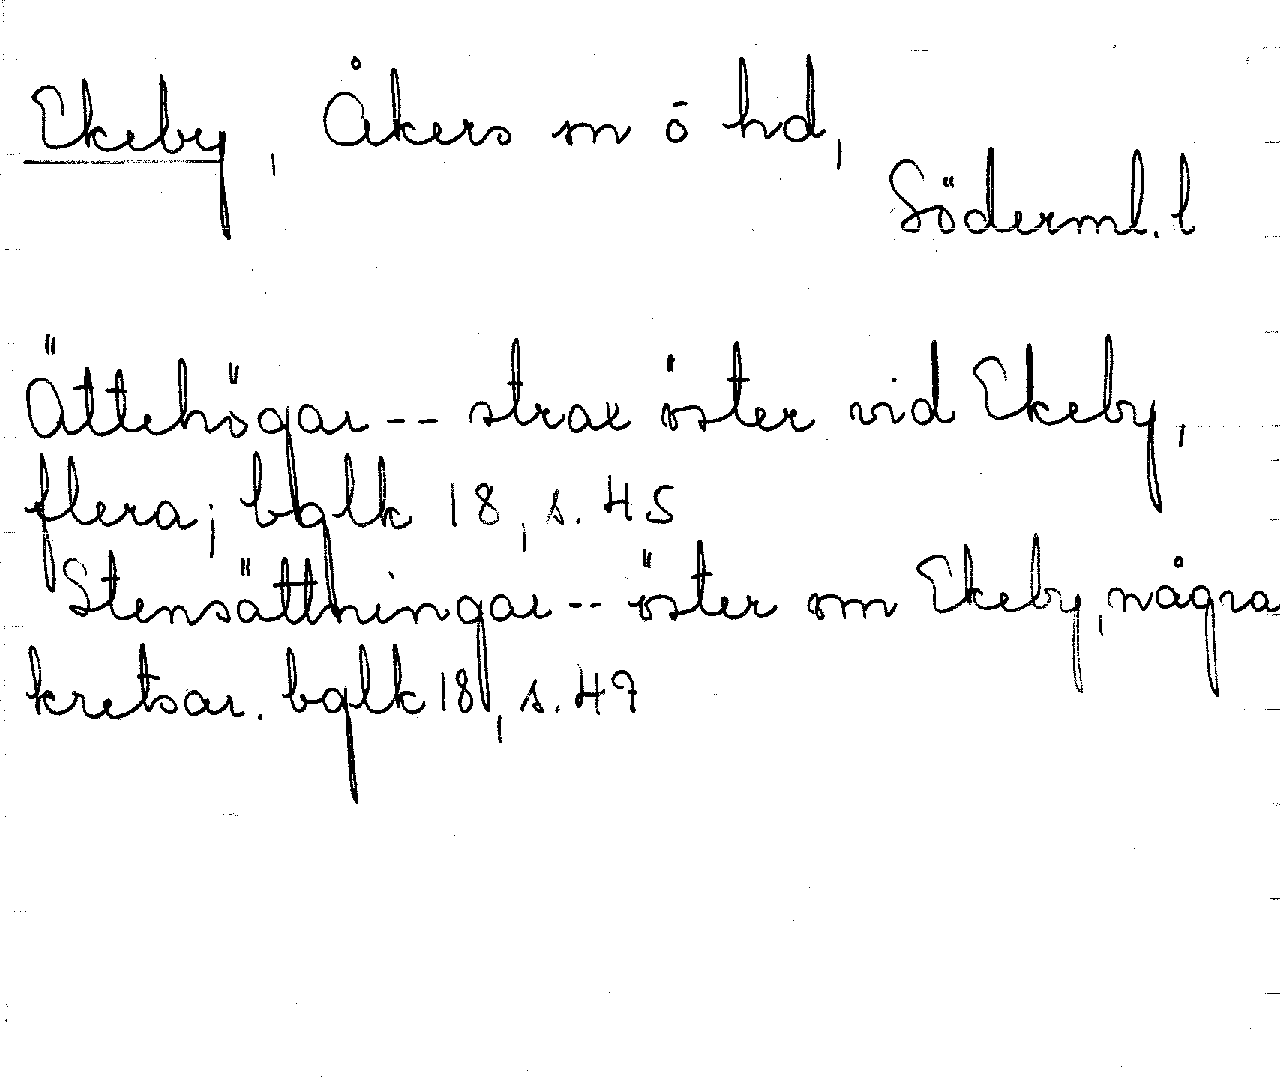 Ekeby, Åkers sn ö hd,
Söderml. l
Ättehögar -- strax öster vid Ekeby,
flera; bglk 18, s. 45
Stensättningar -- öster om Ekeby, några
kretsar. bglk 18, s. 49